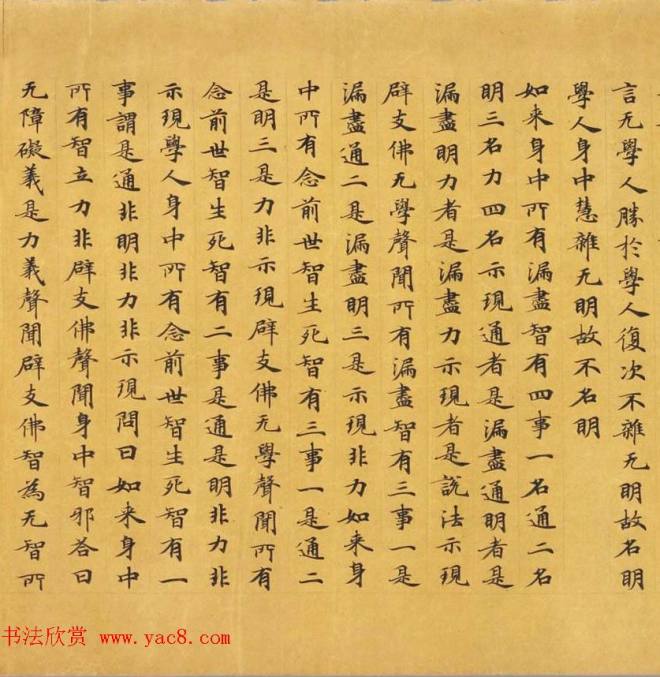 言无學人勝於學人復次不雜无明故名明
學人身中慧雜无明故不名明
如来身中所有漏盡智有四事一名通二名
明三名力四名示現通者是漏盡通明者是
漏盡明力者是漏盡力示現者是說法示現
辟支佛无學聲聞所有漏盡智有三事一是
漏盡通二是漏盡明三是示現非力如来身
中所有念前世智生死智有三事一是通二
是明三是力非示現辟支佛无學聲聞所有
念前世智生死智有二事是通是明非力非
示現學人身中所有念前世智生死智有一
事謂是通非明非力非示現問曰如来身中
所有智立力非辟支佛聲聞身中智邪荅曰
无障礙義是力義聲聞辟支佛智為无智所
书法欣赏 www.yac8.com